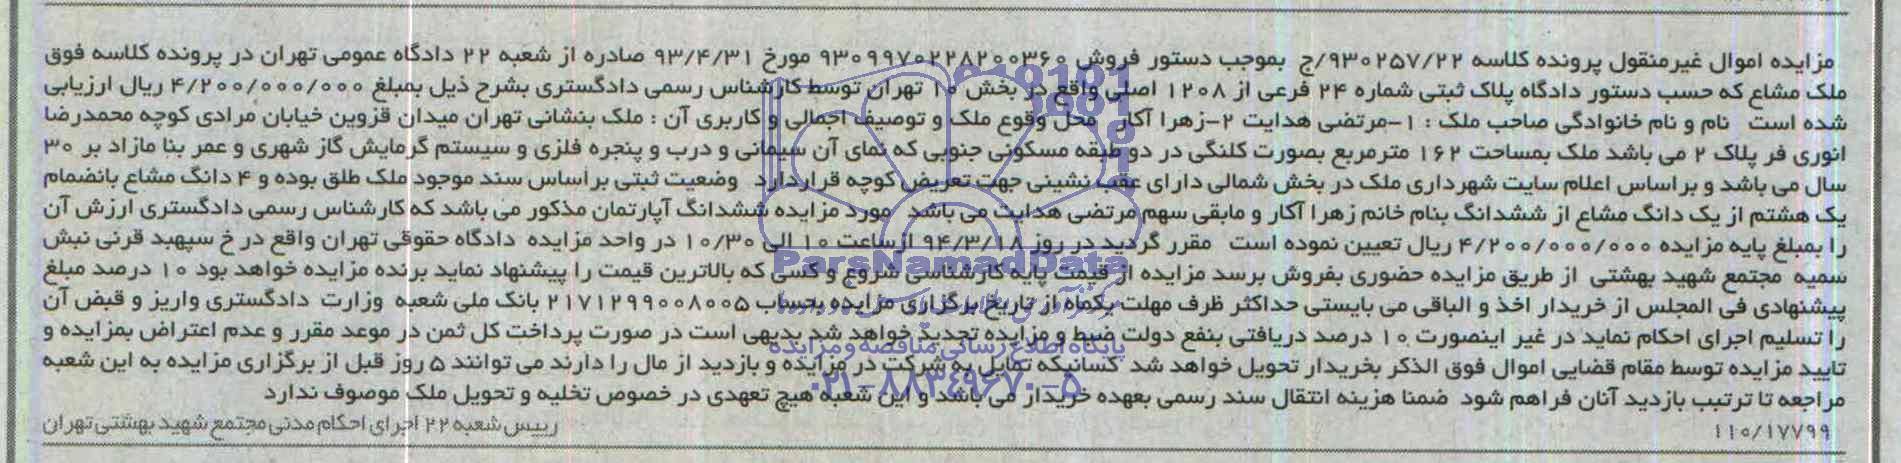 مزایده اموال غیرمنقول پرونده کلاسه ۹۳۰۲۵۷/۲۲/ج بموجب دستور فروش ۹۳۰۹۹۷۰۲۲۸۲۰۰۳۶۰ مورخ ۹۳/۴/۳۱ صادره از شعبه ۲۲ دادگاه عمومی تهران در پرونده کلاسه فوق
ملک مشاع که حسب دستور دادگاه پلاک ثبتی شماره ۲۴ فرعی از ۱۲۰۸ اصلی واقع در بخش ۱۰ تهران توسط کارشناس رسمی دادگستری بشرح ذیل بمبلغ ۴/۲۰۰/۰۰۰/۰۰۰ ریال ارزیابی
شده است نام و نام خانوادگی صاحب ملک : ۱-مرتضی هدایت ۲-زهرا آکار محل وقوع ملک و توصیف اجمالی و کاربری آن : ملک بنشانی تهران میدان قزوین خیابان مرادی کوچه محمدرضا
انوری فر پلاک ۲ می باشد ملک بمساحت ۱۶۲ مترمربع بصورت کلنگی در دو طبقه مسکونی جنوبی که نمای آن سیمانی و درب و پنجره فلزی و سیستم گرمایش گاز شهری و عمر بنا مازاد بر ۳۰
سال می باشد و بر اساس اعلام سایت شهرداری ملک در بخش شمالی دارای عقب نشینی جهت تعریض کوچه قراردارد وضعیت ثبتی بر اساس سند موجود ملک طلق بوده و ۴ دانگ مشاع بانضمام
یک هشتم از یک دانگ مشاع از ششدانگ بنام خانم زهرا آکار و مابقی سهم مرتضی هدایت می باشد مورد مزایده ششدانگ آپارتمان مذکور می باشد که کارشناس رسمی دادگستری ارزش آن
را بمبلغ پایه مزایده ۴/۲۰۰/۰۰۰/۰۰۰ ریال تعیین نموده است مقرر گردید در روز ۹۴/۳/۱۸ ازساعت ۱۰ الی ۱۰/۳۰ در واحد مزایده دادگاه حقوقی تهران واقع در خ سپهبد قرنی نبش
سمیه مجتمع شهید بهشتی از طریق مزایده حضوری بفروش برسد مزایده از قیمت پایه کارشناسی شروع و کسی که بالاترین قیمت را پیشنهاد نماید برنده مزایده خواهد بود ۱۰ درصد مبلغ
پیشنهادی فی المجلس از خریدار اخذ و الباقی می بایستی حداکثر ظرف مهلت یکماه از تاریخ برگزاری مزایده بحساب ۲۱۷۱۲۹۹۰۰۸۰۰۵ بانک ملی شعبه وزارت دادگستری واریز و قبض آن
را تسلیم اجرای احکام نماید در غیر اینصورت ۱۰ درصد دریافتی بنفع دولت ضبط و مزایده تجدید خواهد شد بدیهی است در صورت پرداخت کل ثمن در موعد مقرر و عدم اعتراض بمزایده و
تایید مزایده توسط مقام قضایی اموال فوق الذکر بخریدار تحویل خواهد شد کسانیکه تمایل به شرکت در مزایده و بازدید از مال را دارند می توانند ۵ روز قبل از برگزاری مزایده به این شعبه
مراجعه تا ترتیب بازدید آنان فراهم شود ضمنا هزینه انتقال سند رسمی بعهده خریدار می باشد و این شعبه هیچ تعهدی در خصوص تخلیه و تحویل ملک موصوف ندارد
۱۱۰/۱۷۷۹۹ رییس شعبه ۲۲ اجرای احکام مدنی مجتمع شهید بهشتی تهران
ParsNamadData
پایگاه اطلاع رسانی مناقصه و مزایده
۰۲۱-۸۸۳۴۹۶۷۰-۵